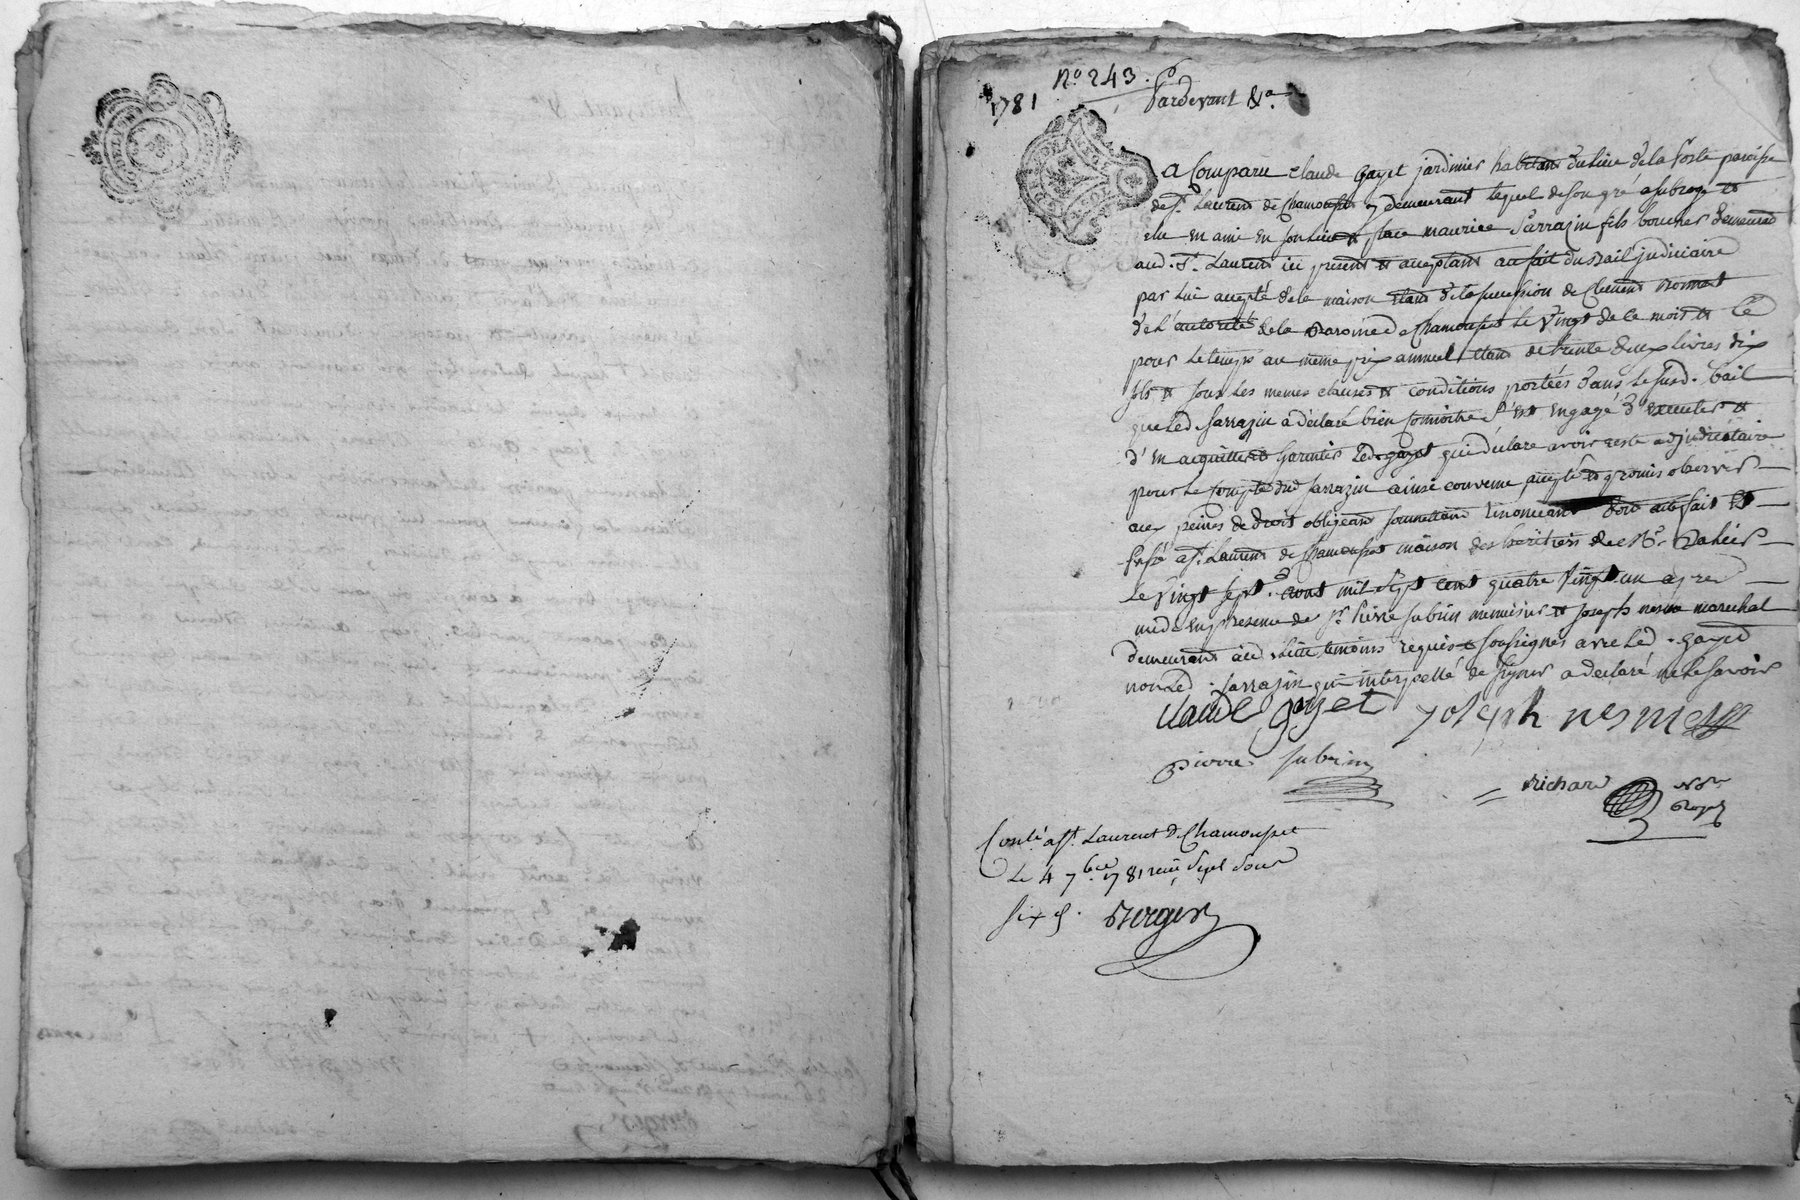 1781
N.º 243.
Pardevant &a.
a Comparu claude gayet jardinier habitant du lieu de la poste paroisse
de St. Laurent de Chamousset y demeurant lequel de son gré a subrogé et
elu en ami en son lieu et place maurice Sarrazin fils boucher demeurant
aud. St. Laurent ici present et acceptant au fait du bail judiciaire
par lui accepté de la maison étant de la succession de Clement
de l'autorité de la Baronie de Chamousset le vingt de ce mois et ce
pour le temps au même prix annuel étant de trente deux livres dix
sols et sous les memes clauses et conditions portées dans le susd. bail
que led. Sarrazin a déclaré bien connoitre s'est engagé d'executer et
d'en acquitter et garentir led. gayet qui déclare avoir resté adjudicataire
pour le compte dud. Sarrazin ainsi convenu accepté et promis observer
aux peines de droit obligeant soumettant renonceant dont acte fait et
passé a St. Laurent de Chamousset maison des héritiers de Me.
le vingt sept aout mil sept cent quatre vingt un apres
midi en presence de Sr. Pierre Subrin menuisier et Joseph nesme marechal
demeurant aud. lieu temoins requis et soussignés avec led. gayet
non led. Sarrazin qui interpellé de signer a declaré ne le savoir
claude gayet joseph nesme
pierre subrin
Richard Nore
Royal
Conlé a St. Laurent de Chamousset
Le 4 7bre 1781 reçu sept sous
six d.
Berger